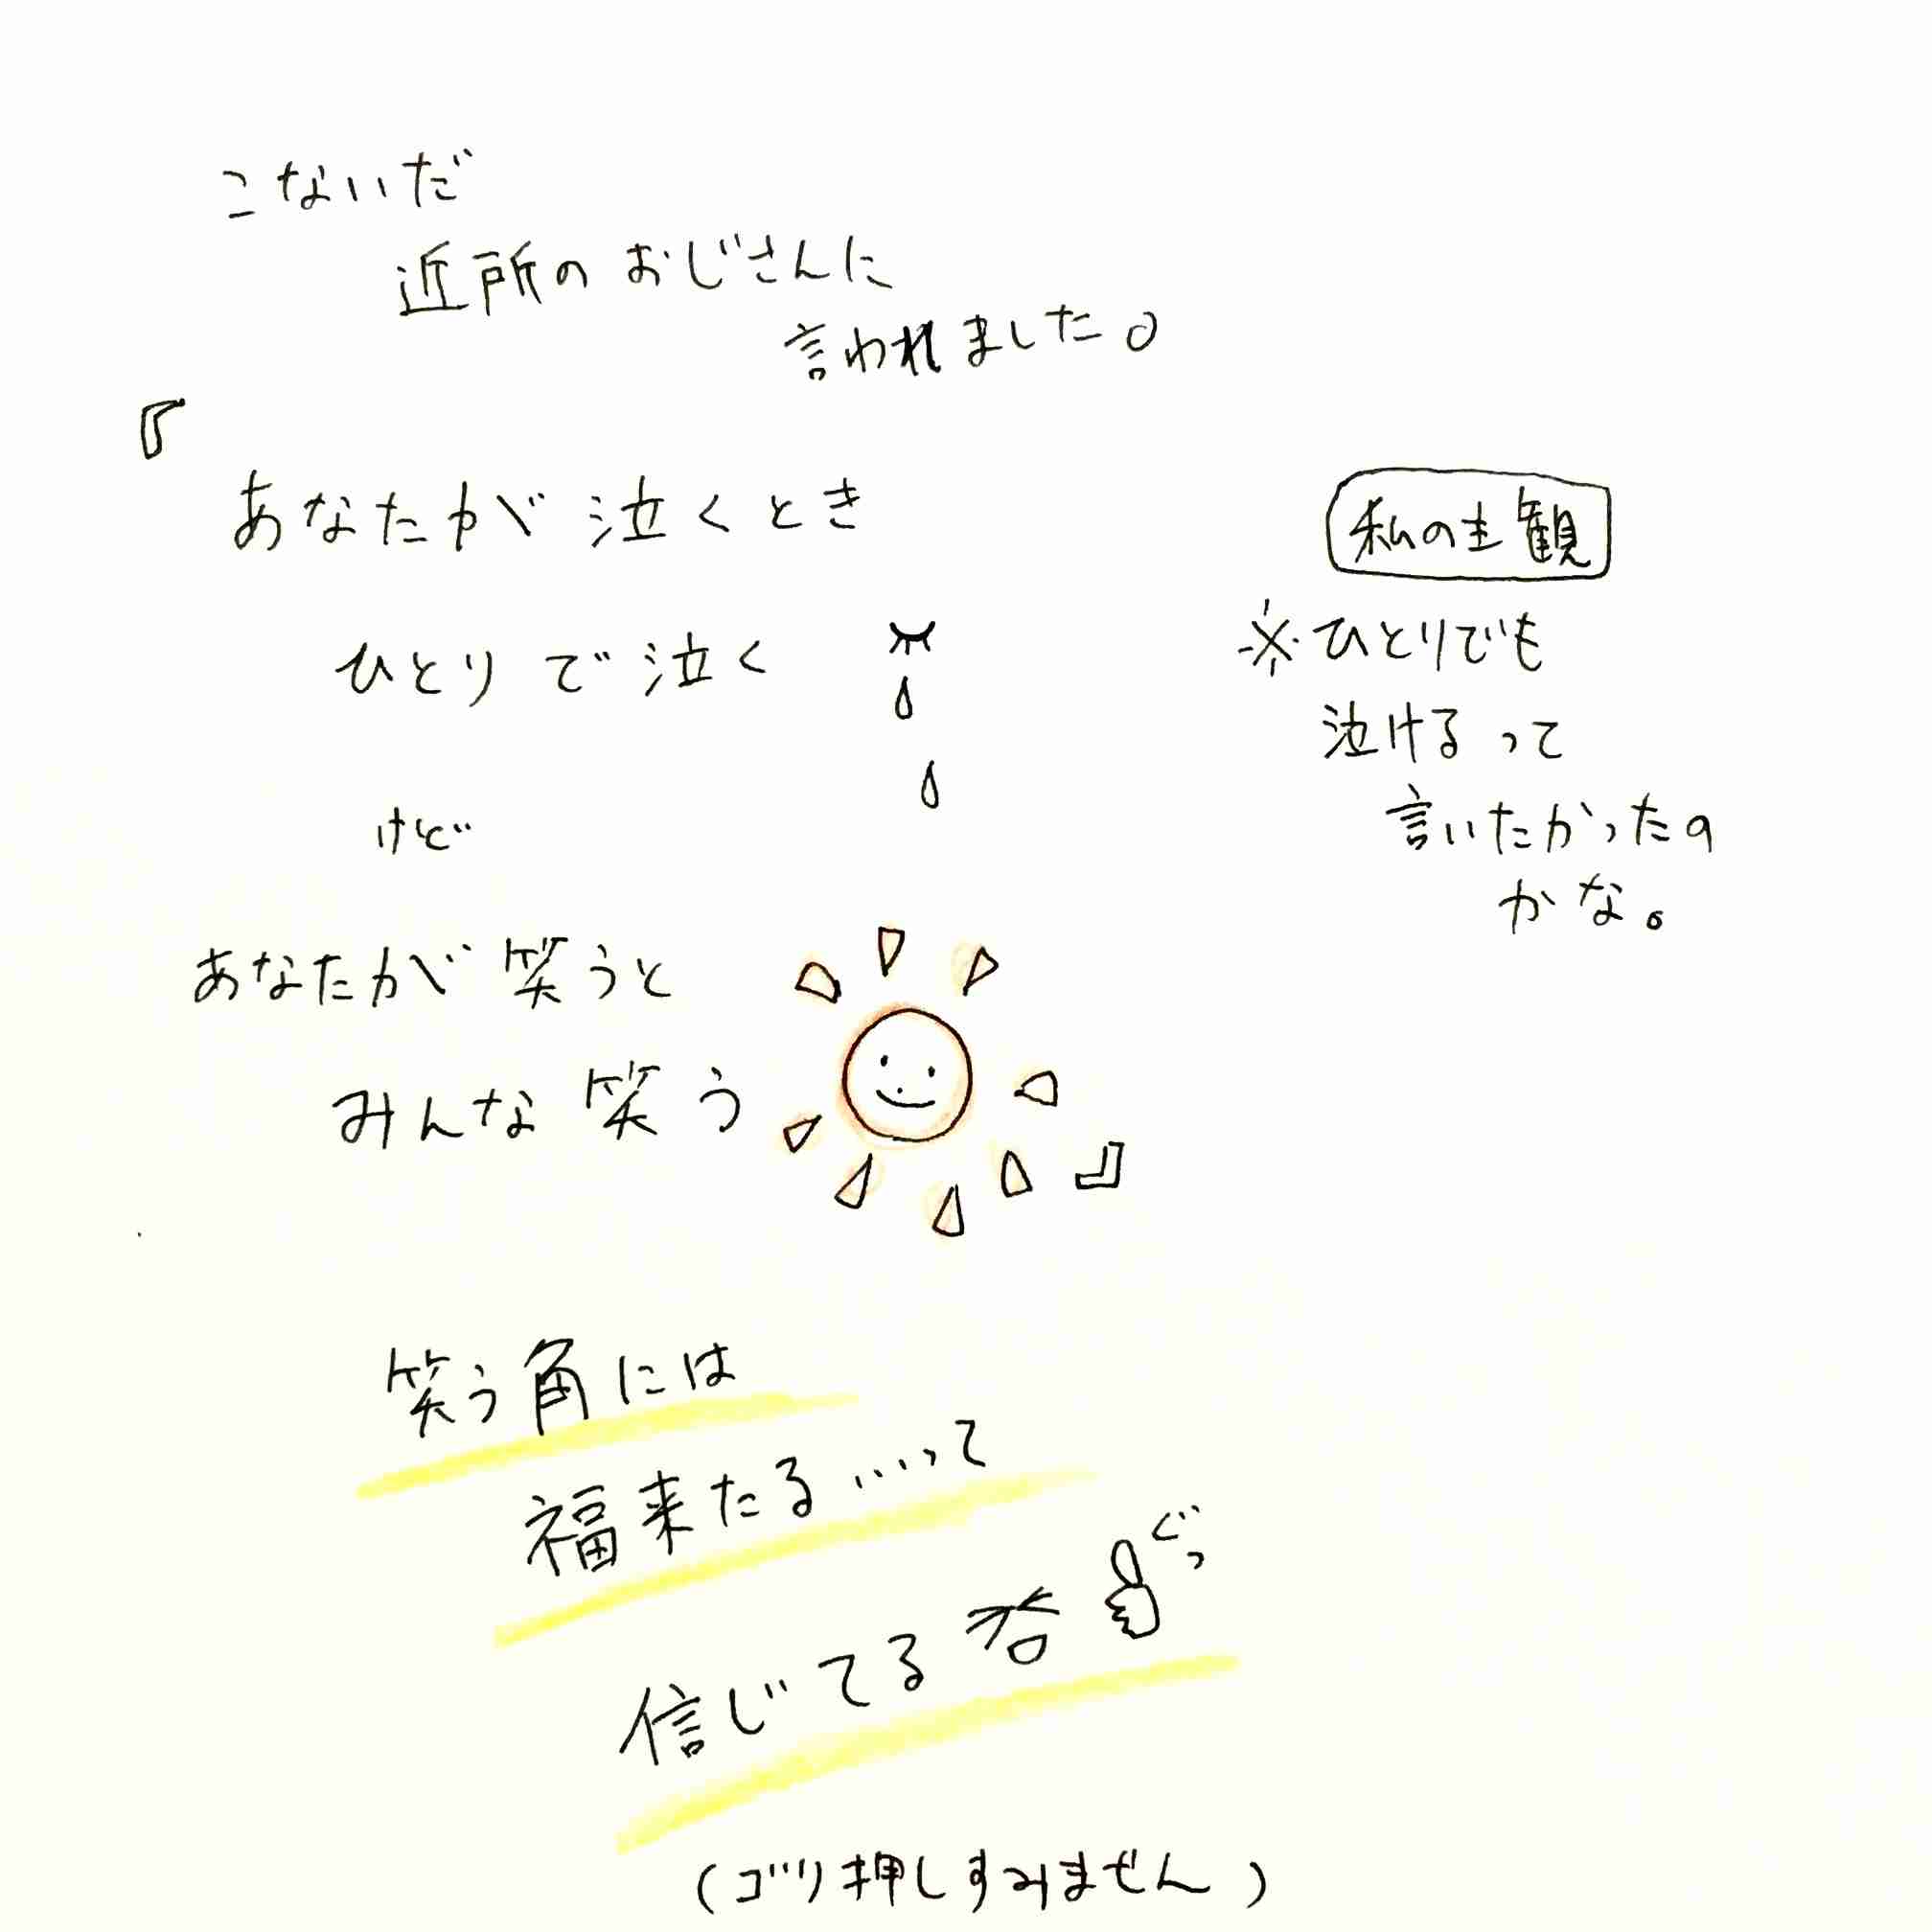 こないだ
近所のおじさんに
言われました。
『
あなたが泣くとき
ひとりで泣く
けど
あなたが笑うと
みんな笑う
』
私の主観
※ひとりでも
泣けるって
言いたかったの
かな。
笑う角には
福来たる……って
信じてる
ぐっ
(ゴリ押しすみません)